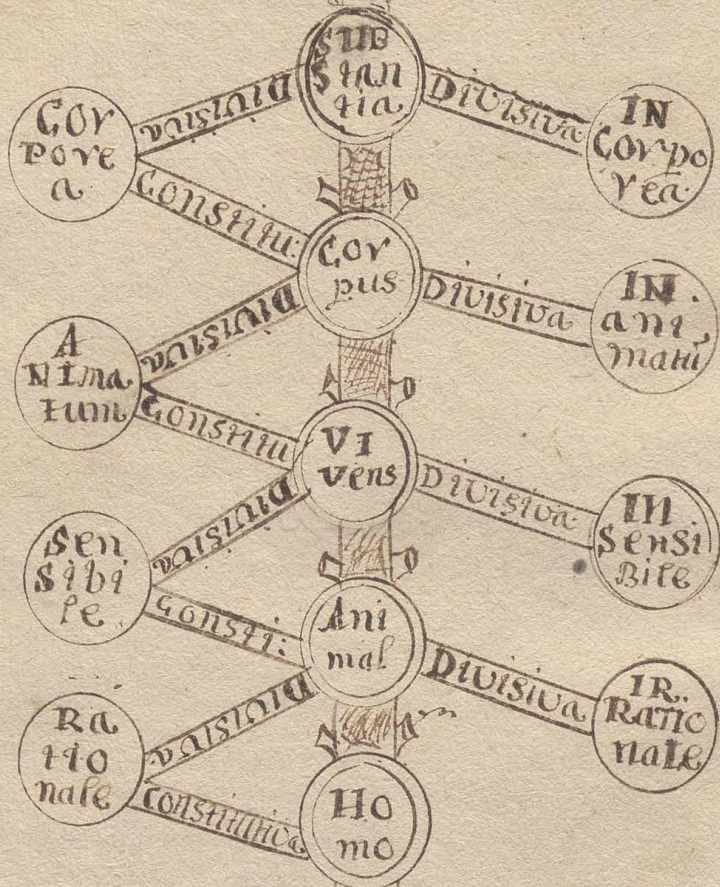 SUB
stan
tia
Divisiva
Divisiva
COR
pore
a
IN
Corpo
rea
Constitu:
Cor
pus
Divisiva
Divisiva
A
NIma
tum
IN.
ani
matū
Constitu
VI
vens
Divisiva
Divisiva
Sen
Sibi
le
IN
Sensi
Bile
Consti:
Ani
mal
Divisiva
Divisiva
Ra
tio
nale
IR.
Ratio
nale
Constitutiva
Ho
mo